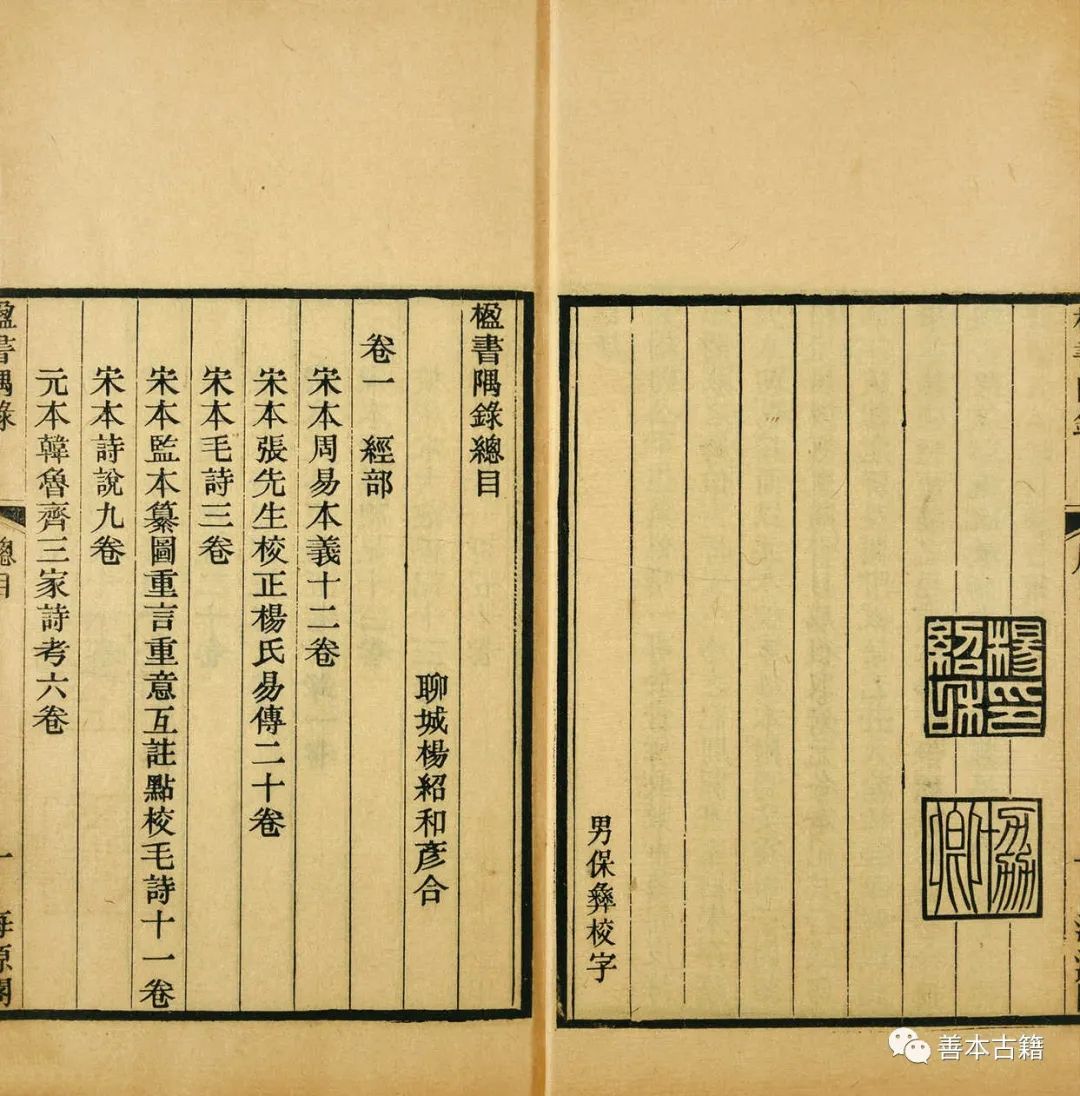 楊紹和印
協卿
男保彝校字
楹書隅錄總目
聊城楊紹和彥合
卷一 經部
宋本周易本義十二卷
宋本張先生校正楊氏易傳二十卷
宋本毛詩三卷
宋本監本纂圖重言重意互註點校毛詩十一卷
宋本詩說九卷
元本韓魯齊三家詩考六卷
楹書隅錄 總目 一 海源閣
善本古籍